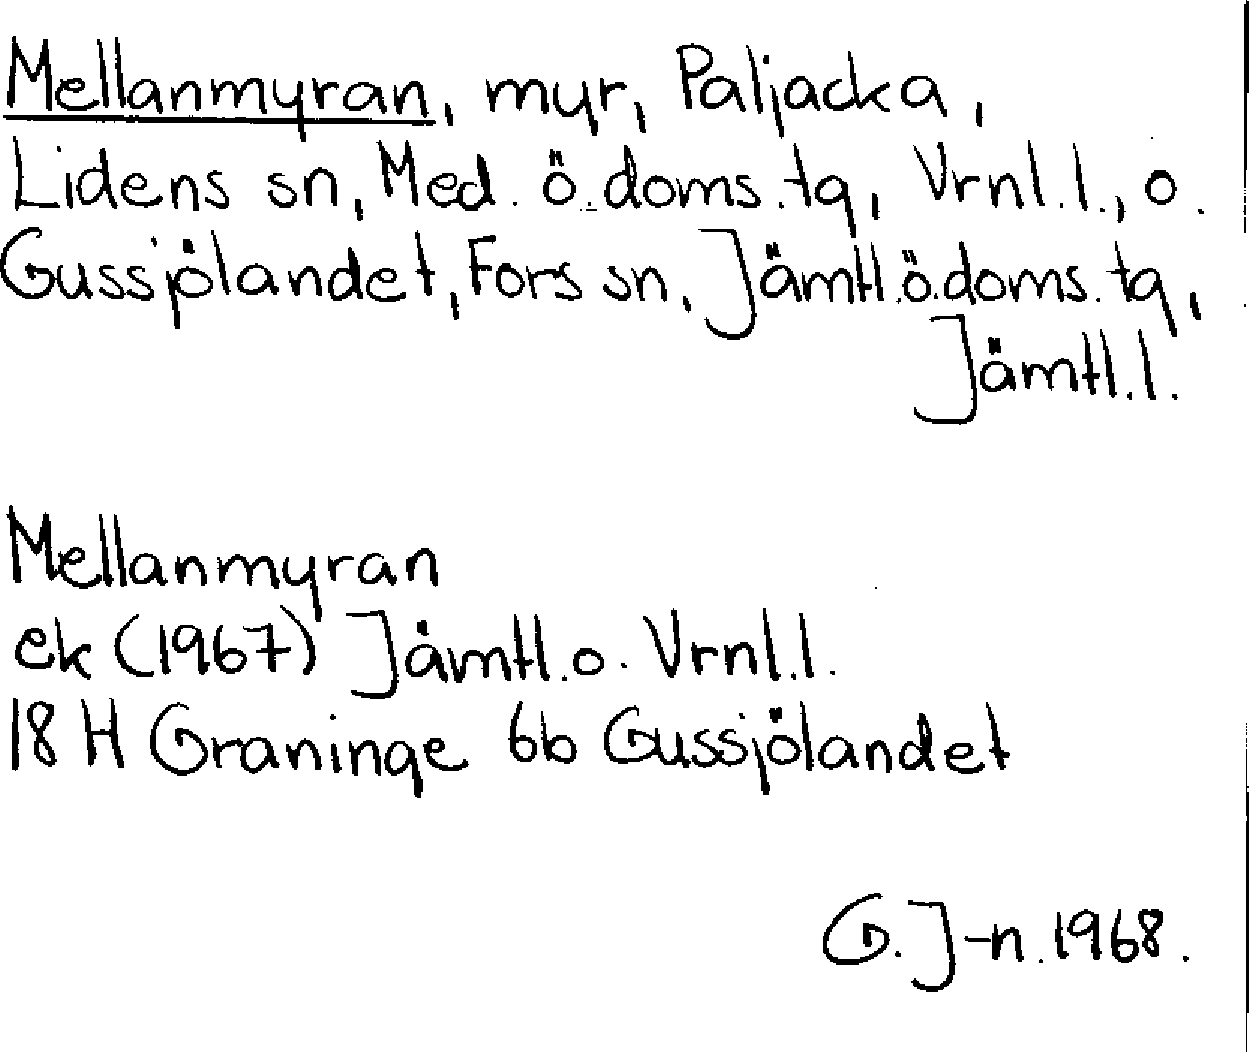 Mellanmyran, myr, Paljacka,
Lidens sn, Med. ö. doms. tg, Vrnl. l., o.
Gussjölandet, Fors sn, Jämtl. ö. doms. tg,
Jämtl. l.
Mellanmyran
ek (1967) Jämtl. o. Vrnl. l.
18 H Graninge 6b Gussjölandet
G. J-n. 1968.